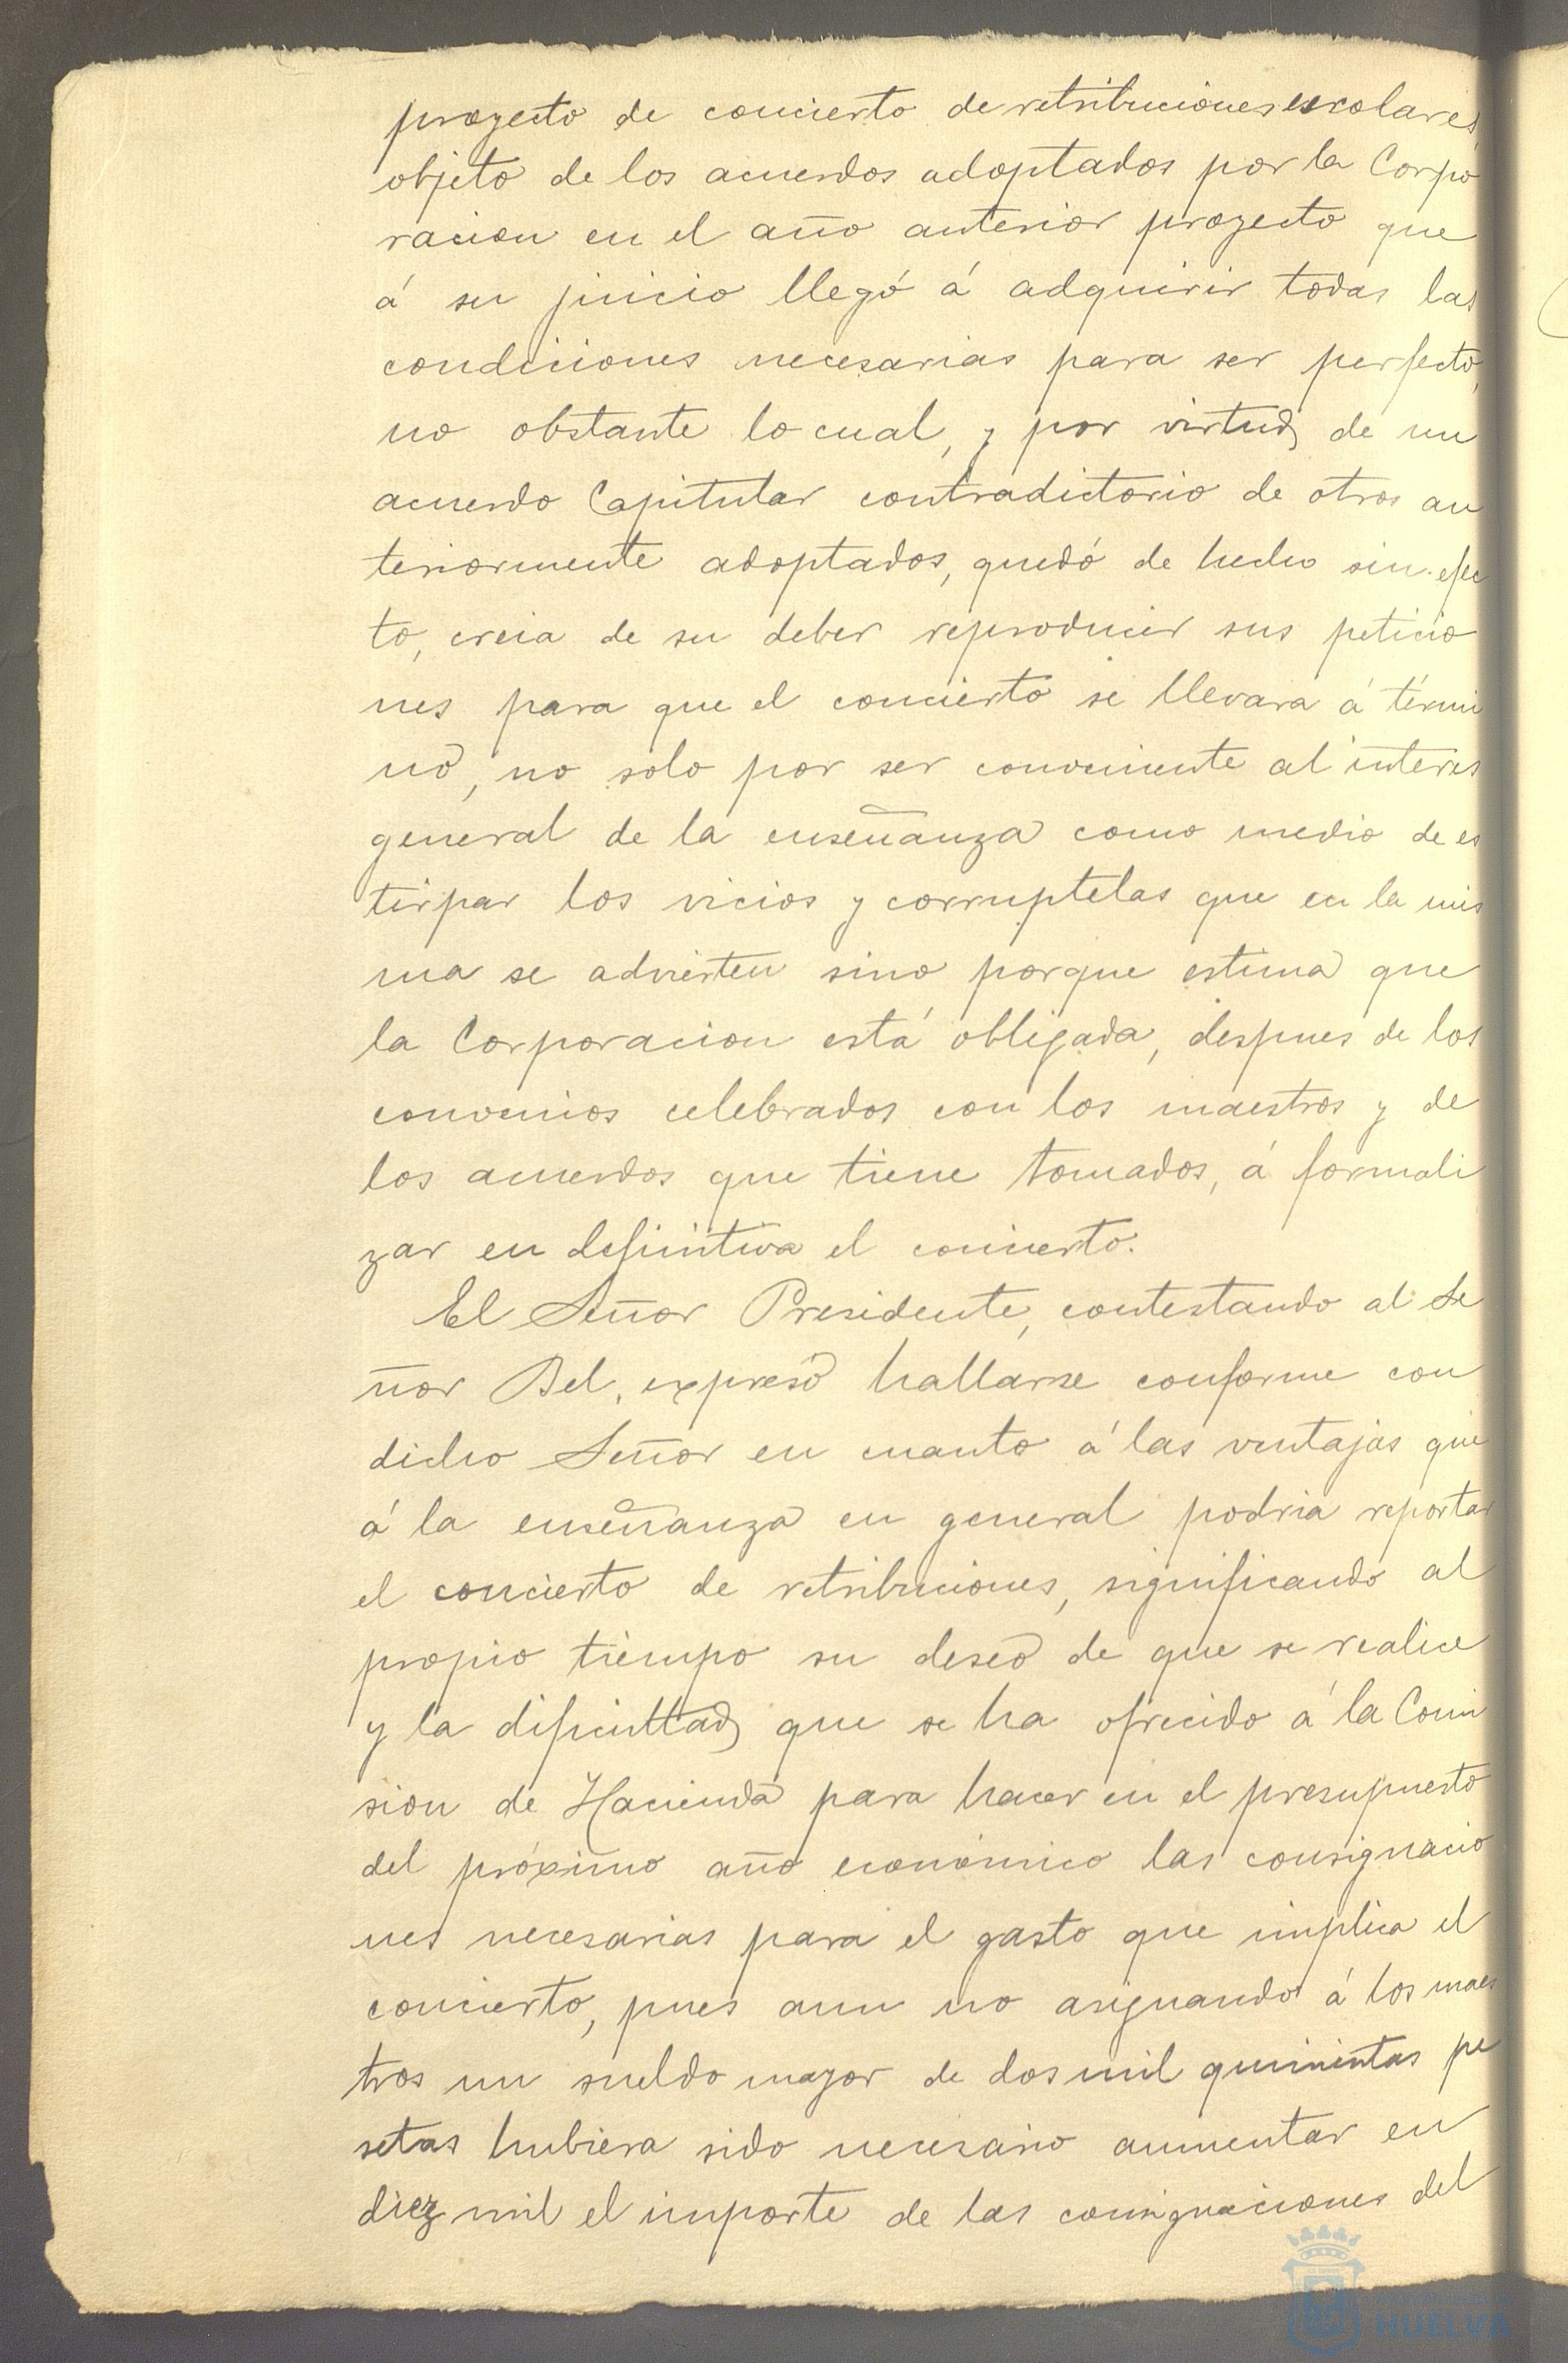 proyecto de concierto de retribuciones escolares
objeto de los acuerdos adoptados por la Corpo
racion en el año anterior proyecto que
á su juicio llegó á adquirir todas las
condiciones necesarias para ser perfecto,
no obstante lo cual, y por virtud de un
acuerdo Capitular contradictorio de otros an
teriormente adoptados, quedó de hecho sin efec
to, creia de su deber reproducir sus peticio
nes para que el concierto se llevara á térmi
no, no solo por ser conveniente al interes
general de la enseñanza como medio de es
tirpar los vicios y corruptelas que en la mis
ma se advierten sino porque estima que
la Corporacion está obligada, despues de los
convenios celebrados con los maestros y de
los acuerdos que tiene tomados, á formali
zar en definitiva el concierto.
El Señor Presidente, contestando al Se
ñor Bel, expresó hallarse conforme con
dicho Señor en cuanto á las ventajas que
á la enseñanza en general podria reportar
el concierto de retribuciones, significando al
propio tiempo su deseo de que se realice
y la dificultad que se ha ofrecido á la Comi
sion de Hacienda para hacer en el presupuesto
del próximo año económico las consignacio
nes necesarias para el gasto que implica el
concierto, pues aun no asignando á los maes
tros un sueldo mayor de dos mil quinientas pe
setas hubiera sido necesario aumentar en
diez mil el importe de las consignaciones del
HUELVA